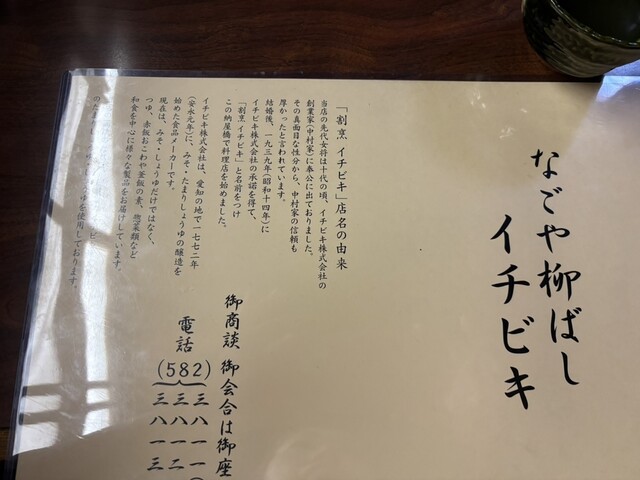 なごや柳ばし
イチビキ
「割烹 イチビキ」店名の由来
当店の先代女将は十代の頃、イチビキ株式会社の
創業家(中村家)に奉公に出ておりました。
その真面目な性分から、中村家の信頼も
厚かったと言われています。
結婚後、一九三九年(昭和十四年)に
イチビキ株式会社の承諾を得て、
「割烹 イチビキ」と名前をつけ
この納屋橋で料理店を始めました。
イチビキ株式会社は、愛知の地で一七七二年
(安永元年)に、みそ・たまりしょうゆの醸造を
始めた食品メーカーです。
現在は、みそ・しょうゆだけではなく、
つゆ、赤飯おこわや釜飯の素、惣菜類など
和食を中心に様々な製品をお届けしています。
を使用しております。
御商談 御会合は御座
電話(582)
三八一一
三八一二
三八一三